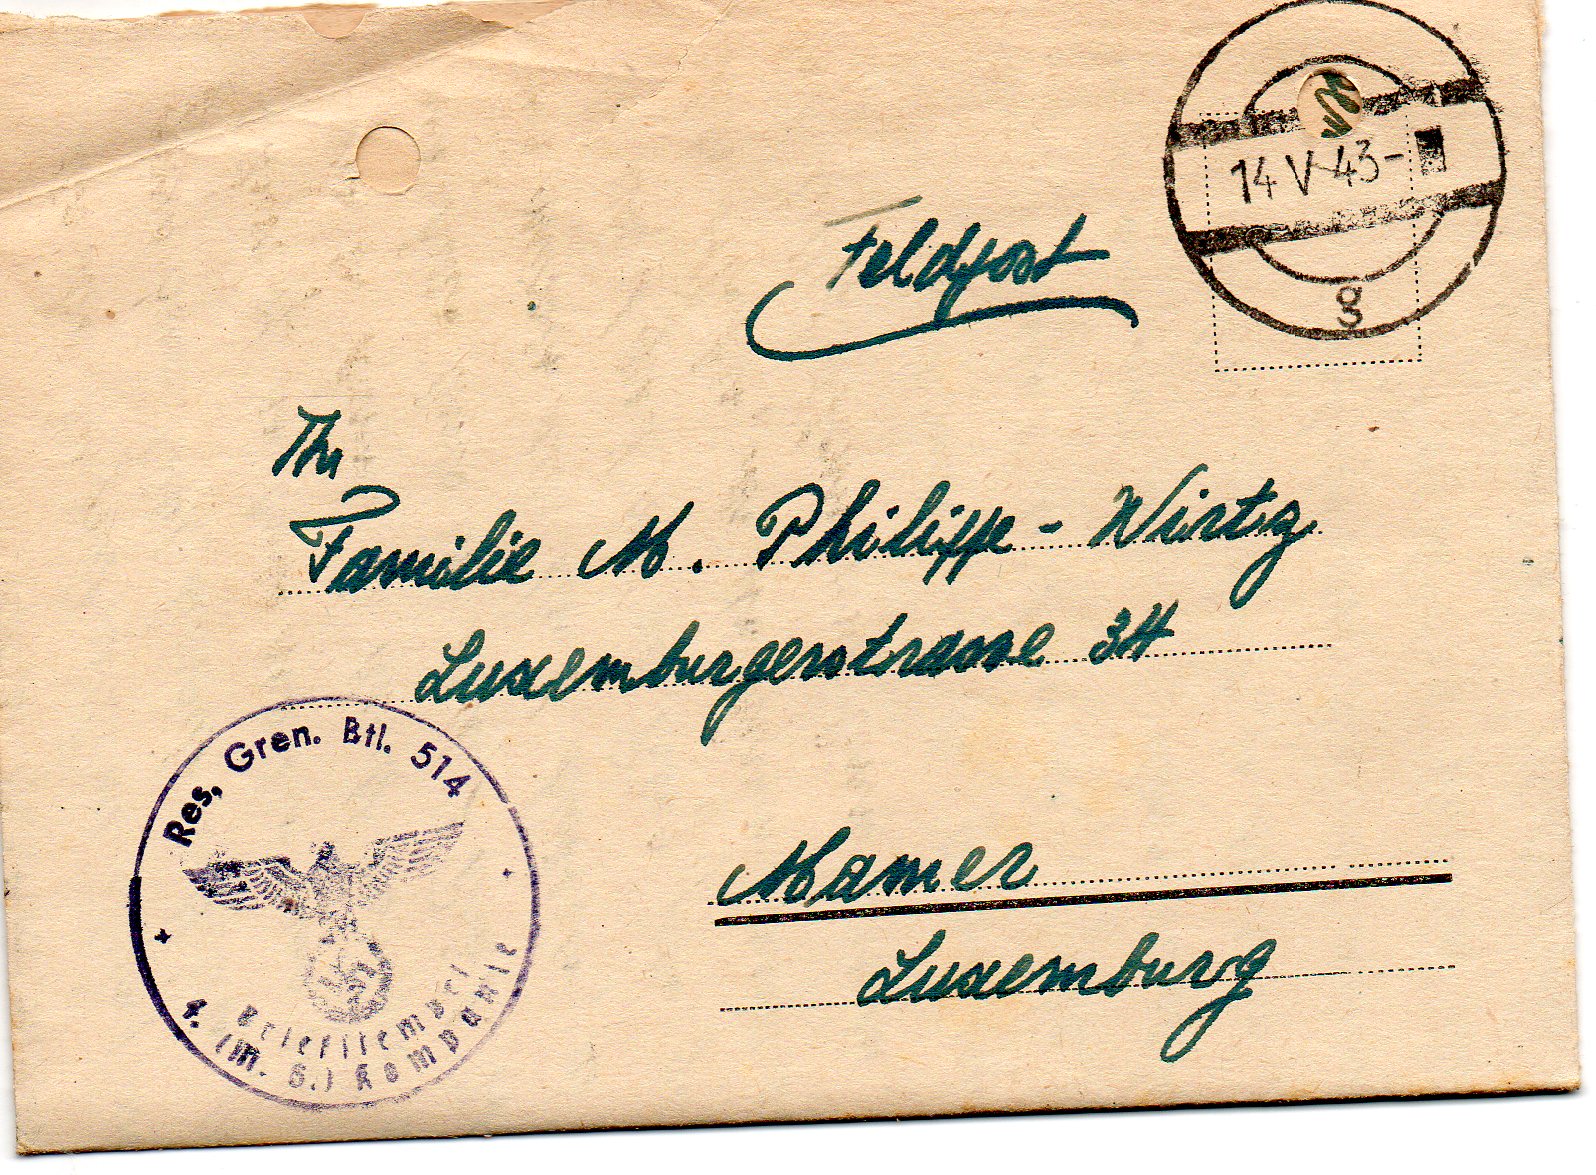 14 V 43 -
g
Feldpost
Familie M. Philippe - Wirtz
Luxemburgerstrasse 34
Mamer
Luxemburg
Res. Gren. Btl. 514
Briefstempel
4. (M. G.) Kompanie